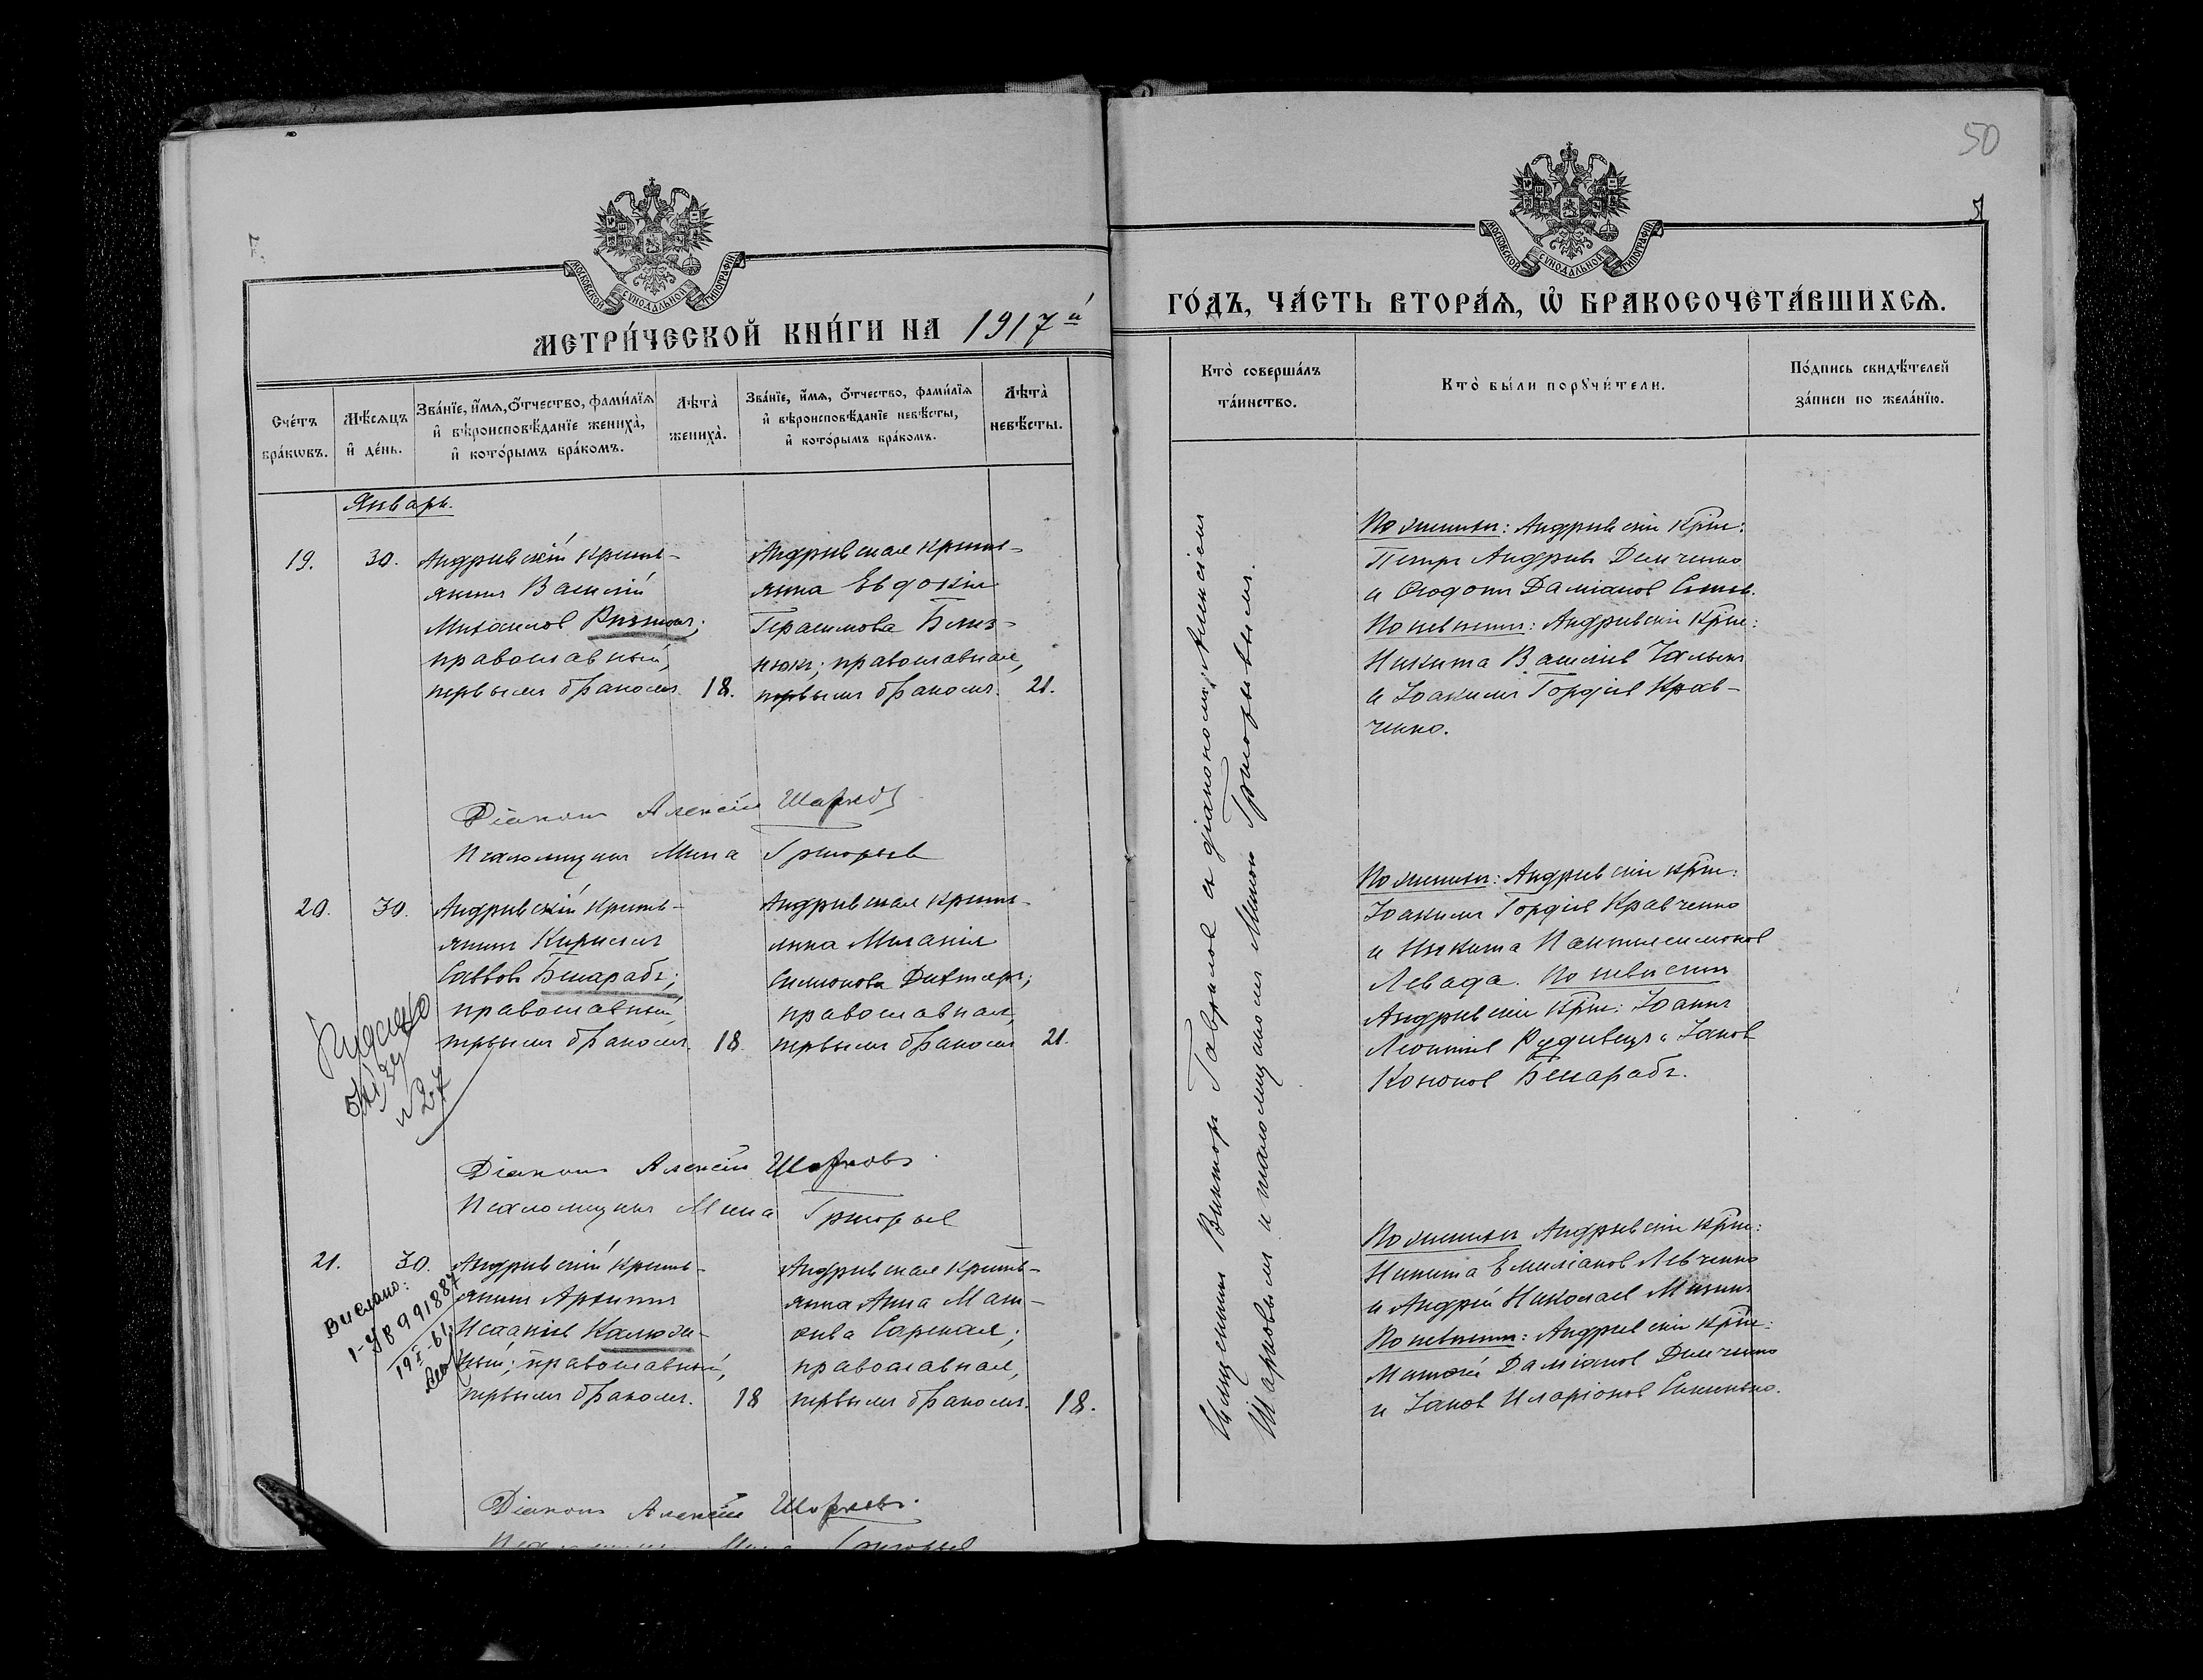 50
МОСКОВСКОЙ СѴНОДАЛЬНОЙ ТИПОГРАФІИ
МЕТРИ́ЧЕСКОЙ КНИ́ГИ НА 1917й
Сче́тъ бра́кѡвъ.
Мѣ́сяцъ и҆ де́нь.
Зва́нїе, и҆́мя, ѻ҆́тчество, фами́лїя и҆ вѣроисповѣ́данїе жениха̀, и҆ кото́рымъ бра́комъ.
Лѣта̀ жениха̀.
Зва́нїе, и҆́мя, ѻ҆́тчество, фами́лїя и҆ вѣроисповѣ́данїе невѣ́сты, и҆ кото́рымъ бра́комъ.
Лѣта̀ невѣ́сты.
Январь.
19.
30.
Андріевскій крестья-
нинъ Василій
Михаилов
православный,
первымъ бракомъ.
18.
Андріевская крестья-
янка Евдокія
Герасимова Близ-
нюкъ; православная,
первымъ бракомъ.
21.
Діаконъ Алексій Шарковъ
Псаломщикъ Мина Григорьев
20.
30.
Андріевскій кресть-
янинъ Кириллъ
Саввов Бешарабъ;
православный,
первымъ бракомъ.
18.
Андріевская кресть-
янка Меланія
Симонова Дехтярь;
православная,
первымъ бракомъ
21.
№ 27
Діаконъ Алексій Шарковъ.
Псаломщикъ Мина Григорьев
21.
30.
Андріевскій кресть-
янинъ Архипъ
Исаакіев Калюж-
ный; православный,
первымъ бракомъ.
18
Андріевская кресть-
янка Анна Мат-
; православная,
первымъ бракомъ.
18.
Вислано:
Діаконъ Алексій Шарковъ.
Псаломщикъ Мина Григорьев
МОСКОВСКОЙ СѴНОДАЛЬНОЙ ТИПОГРАФІИ
ГО́ДЪ, ЧА́СТЬ ВТОРА́Я, Ѽ БРАКОСОЧЕТА́ВШИХСЯ.
Кто̀ соверша́лъ та́инство.
Кто̀ бы́ли порꙋчи́тели.
По́дпись свидѣ́телей за́писи по жела́нїю.
Священникъ Викторъ Гаврилов съ діакономъ Алексіемъ
Шарковымъ и псаломщикомъ Миною Григорьевымъ.
По женихѣ: Андріевскіе крес:
Петръ Андріев Демченко
и Ѳеодотъ Даміанов
По невѣстѣ: Андріевскіе крес:
Никита Василіев
и Іоакимъ Гордіев Крав-
ченко.
По женихѣ: Андріевскіе крес:
Іоакимъ Гордіев Кравченко
и Никита Пантелеимонов
Левада. По невѣстѣ
Андріевскіе крес: Іоаннъ
Леонтіев Рудивецъ и Іаков
Кононов Бешарабъ.
По женихѣ Андріевскіе крес:
Никита Емиліанов Левченко
и Андрей Николаев
По невѣстѣ: Андріевскіе крес:
Матѳей Даміанов Демченко
и Іаков Иларіонов